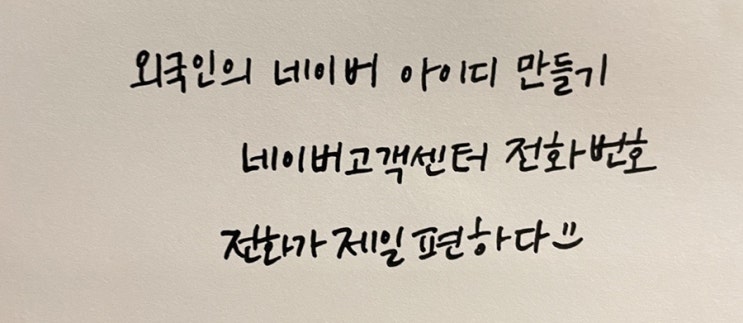 외국인의 네이버 아이디 만들기
네이버고객센터 전화번호
전화가 제일 편하다